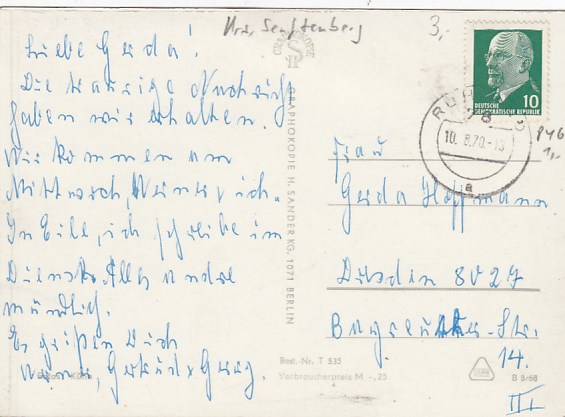 Krs. Senftenberg
3,-
Liebe Gerda!
Die traurige Nachricht
haben wir erhalten.
Wir kommen am
Mittwoch, Heinz u. ich.
In Eile, ich schreibe im
Dienst. Alles andre
mündlich.
Es grüßen Dich
Gertrud & Georg.
GRAPHOKOPIE H. SANDER KG. 1071 BERLIN
DEUTSCHE
DEMOKRATISCHE REPUBLIK
10
10. 8.70.-13
a
1,-
Frau
Gerda Hoffmann
Dresden 8027
Str.
14.
III
Best.-Nr. T 535
Verbraucherpreis M -,25
B 8/68